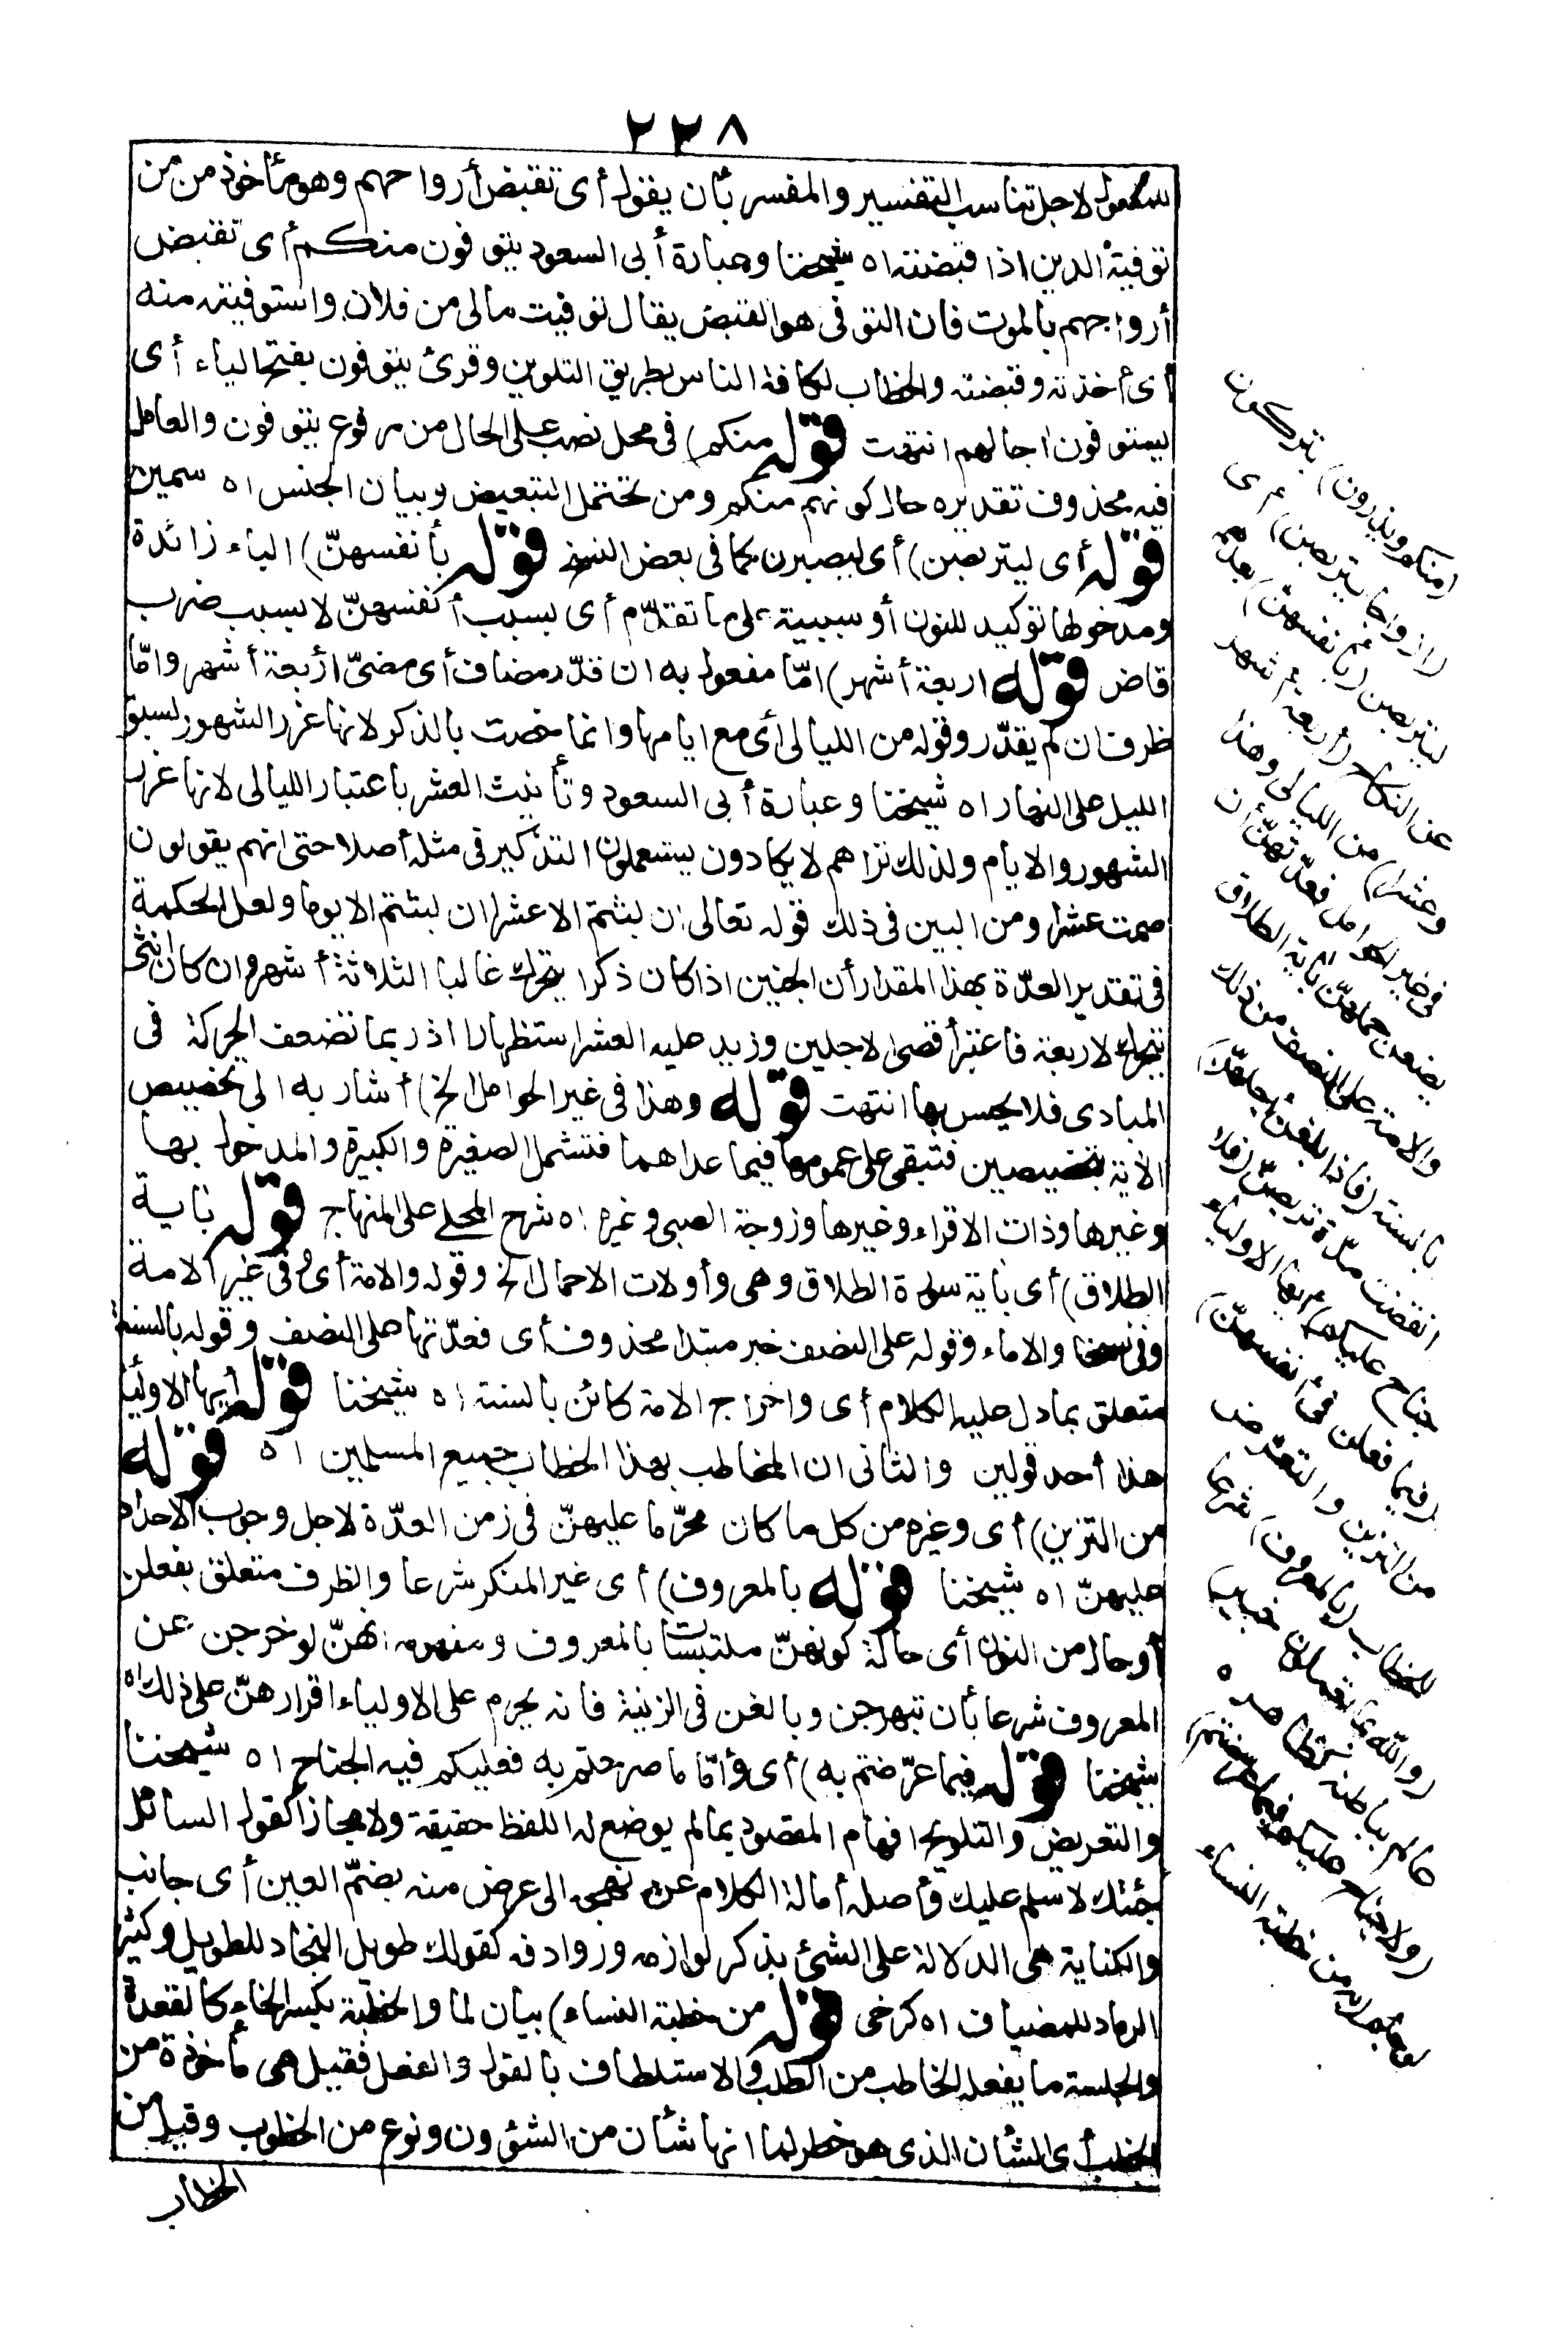 ٢٢٨
للمفعول لاجل تناسب التفسير والمفسر بأن يقول أى تقبض أرواحهم وهو مأخوذ من من
توفية الدين اذا قبضته اه شيخنا وعبارة أبى السعود يتوفون منكم أى تقبض
أرواحهم بالموت فان التوفى هو القبض يقال توفيت مالى من فلان واستوفيته منه
أى أخذته وقبضته والخطاب لكافة الناس بطريق التلوين وقرئ يتوفون بفتح الياء أى
يستوفون اجالهم انتهت قوله منكم) فى محل نصب على الحال من مرفوع يتوفون والعامل
فيه محذوف تقديره حال كونهم منكم ومن تحتمل التبعيض وبيان الجنس اه سمين
قوله أى ليتربصن) أى ليصبرن كما فى بعض النسخ قوله بأنفسهنّ) الباء زائدة
ومدخولها توكيد للنون أو سببية على ما تقدّم أى بسبب أنفسهنّ لا بسبب ضرب
قاض قوله اربعة أشهر) امّا مفعول به ان قدّر مضاف أى مضىّ اربعة أشهر وامّا
ظرف ان لم يقدّر وقوله من الليالى أى مع ايامها وانما خصت بالذكر لانها غرر الشهور لسبق
الليل على النهار اه شيخنا وعبارة أبى السعود وتأنيث العشر باعتبار الليالى لانها غرر
الشهور والايام ولذلك تراهم لا يكادون يستعملون التذكير فى مثله أصلا حتى انهم يقولون
صمت عشرا ومن البين فى ذلك قوله تعالى ان لبثتم الا عشرا ان لبثتم الا يوما ولعل الحكمة
فى تقدير العدّة بهذا المقدار أن الجنين اذا كان ذكرا يتحرك غالبا لثلاثة أشهر وان كان انثى
يتحرك لاربعة فاعتبر أقصى الاجلين وزيد عليه العشر استظهارا اذ ربما تضعف الحركة فى
المبادى فلا يحس بها انتهت قوله وهذا فى غير الحوامل الخ) أشار به الى تخصيص
الاية بتخصيصين فتبقى على عمومها فيما عداهما فتشمل الصغيرة والكبيرة والمدخول بها
وغيرها وذات الاقراء وغيرها وزوجة الصبى وغيره اه شرح المحلى على المنهاج قوله باية
الطلاق) أى باية سورة الطلاق وهى وأولات الاحمال الخ وقوله والامة أى وفى غير الامة
وفى نسخة والاماء وقوله على النصف خبر مبتدا محذوف أى فعدّتها على النصف وقوله بالسنة
متعلق بما دل عليه الكلام أى واخراج الامة كائن بالسنة اه شيخنا قوله أيها الاولياء
هذا أحد قولين والثانى ان المخاطب بهذا الخطاب جميع المسلمين اه قوله
من التزين) أى وغيره من كل ما كان محرّما عليهنّ فى زمن العدّة لاجل وجوب الاحداد
عليهنّ اه شيخنا قوله بالمعروف) أى غير المنكر شرعا والظرف متعلق بفعلن
أو حال من النون أى حالة كونهنّ ملتبسات بالمعروف ومفهومه انهنّ لو خرجن عن
المعروف شرعا بأن تبهرجن وبالغن فى الزينة فانه يحرم على الاولياء اقرارهنّ على ذلك اه
شيخنا قوله فيما عرّضتم به) أى وأمّا ما صرحتم به فعليكم فيه الجناح اه شيخنا
والتعريض والتلويح افهام المقصود بما لم يوضع له اللفظ حقيقة ولا مجازا كقول السائل
جئتك لاسلم عليك وأصله أمالة الكلام عن نهجه الى عرض منه بضمّ العين أى جانب
والكناية هى الدلالة على الشئ بذكر لوازمه وروادفه كقولك طويل النجاد للطويل وكثير
الرماد للمضياف اه كرخى قوله من خطبة النساء) بيان لما والخطبة بكسر الخاء كالقعدة
والجلسة ما يفعله الخاطب من الطلب والاستلطاف بالقول والفعل فقيل هى مأخوذة من
الخطب أى الشأن الذى هو خطر لما انها شأن من الشؤون ونوع من الخطوب وقيل من
الخطاب
(منكم ويذرون) يتركون
(ازواجا يتربصن) أى
ليتربصن (بأنفسهنّ) بعدهم
عن النكاح (أربعة أشهر
وعشرا) من الليالى وهذا
فى غير الحوامل فعدّتهنّ أن
يضعن حملهنّ بآية الطلاق
والامة على النصف من ذلك
بالسنة (فاذا بلغن أجلهنّ)
انقضت مدّة تربصهنّ (فلا
جناح عليكم) أيها الاولياء
(فيما فعلن فى أنفسهنّ)
من التزين والتعرّض
للخطاب (بالمعروف) شرعا
(والله بما تعملون خبير)
عالم بباطنه كظاهره
(ولا جناح عليكم فيما عرضتم)
لوحتم (به من خطبة النساء